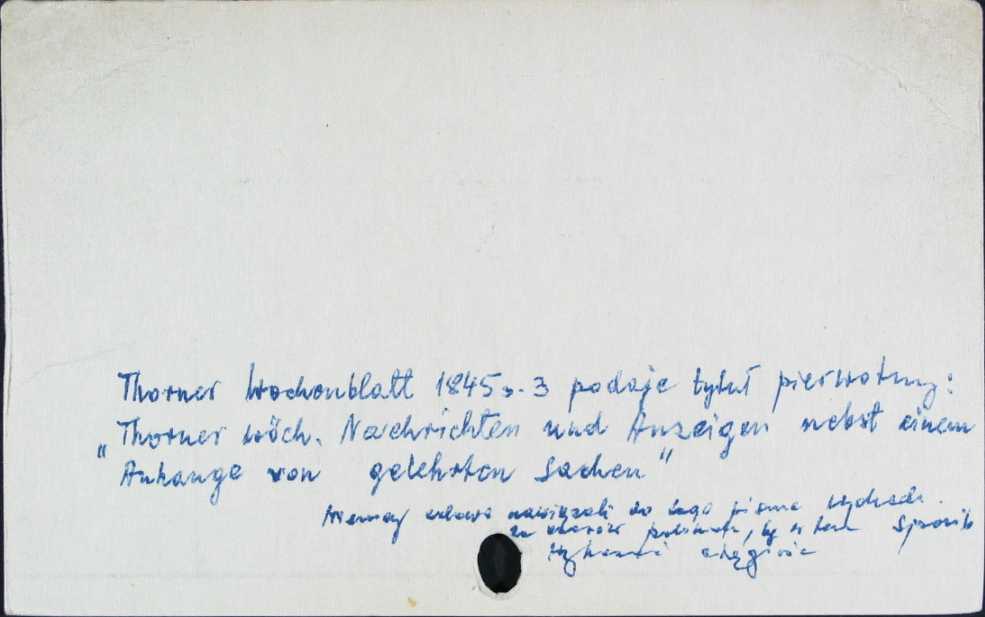 Thorner Wochenblatt 1845 s. 3 podaje tytuł pierwotny:
„Thorner wöch. Nachrichten und Anzeigen nebst einem
Anhange von gelehrten Sachen"
Niemcy nawiązali do tego pisma
by w ten sposób
wykazać ciągłość